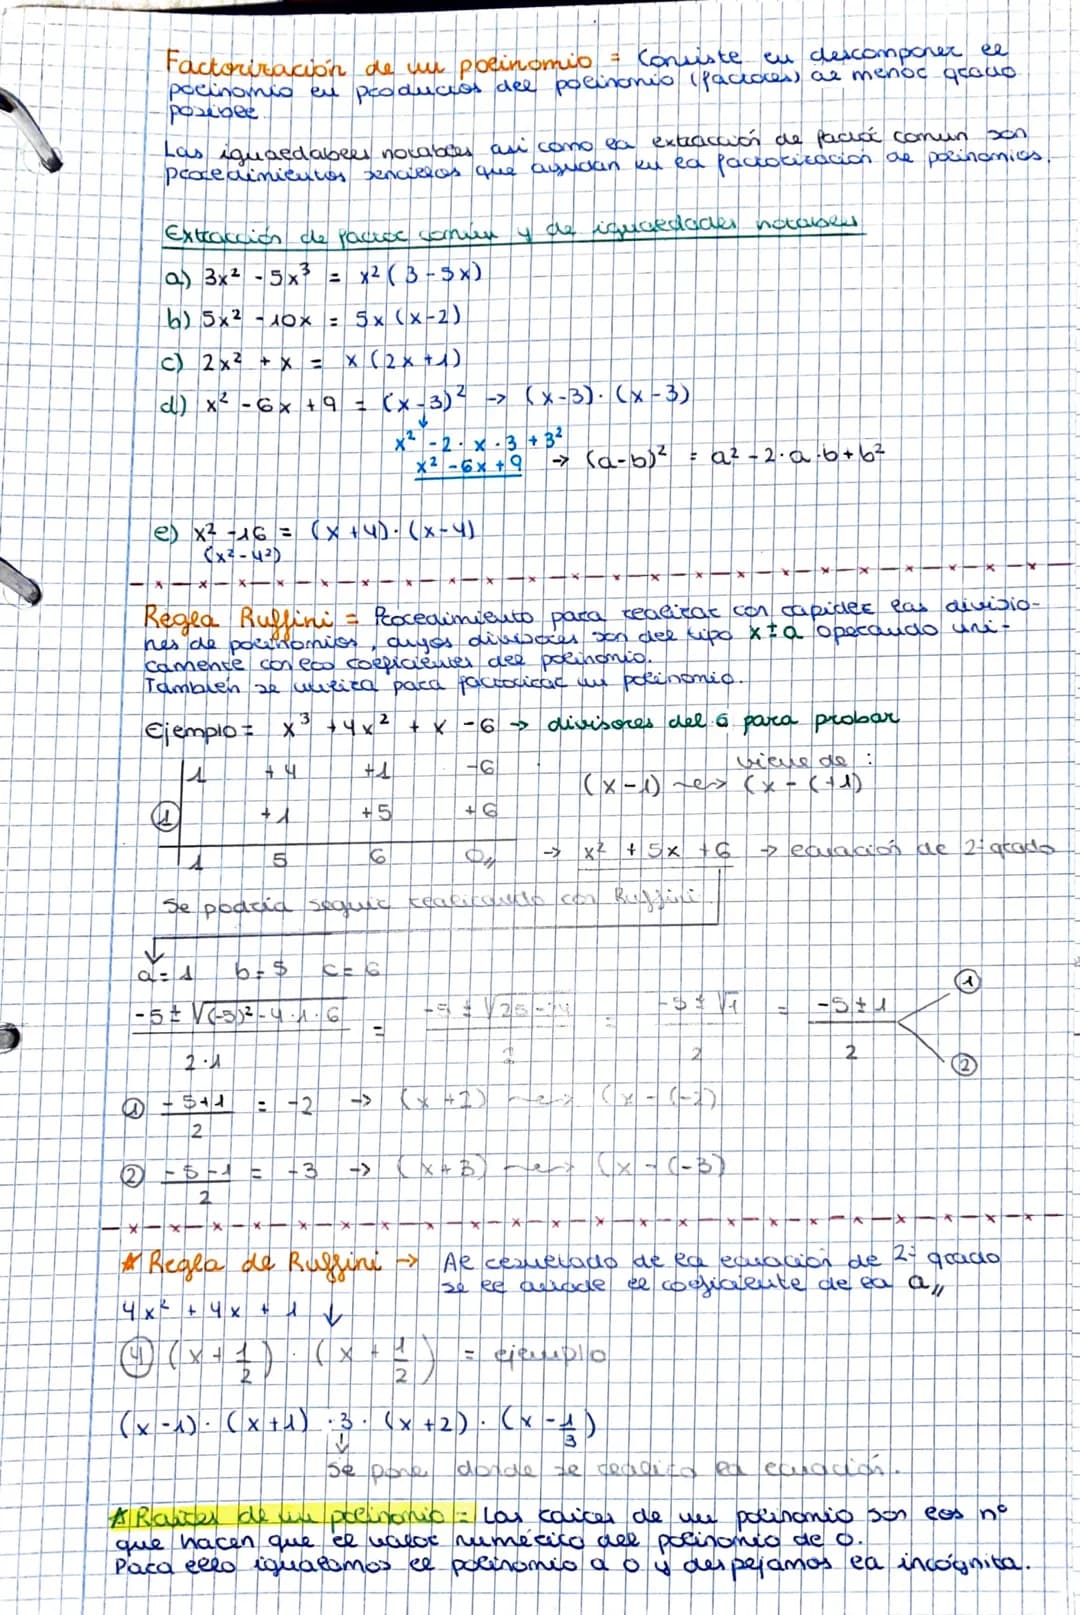 Factorización de un polinomio = Consiste en descomponer el
polinomio en productos del polinomio (factores) de menor grado
posible.
Las igualdabes notables asi como la extracción de factor comun son
procedimientos sencillos que ayudan en la factorización de polinomios.
Extracción de factor común y de igualdades notables
a) 3x² - 5x³ = x² (3 - 5x)
b) 5x² - 10x = 5x (x-2)
c) 2x² + x = x (2x+1)
d) x² - 6x + 9 = (x-3)² → (x-3) · (x-3)
x² - 2 · x · 3 + 3²
x² - 6x + 9 → (a-b)² = a² - 2·a·b + b²
e) x² - 16 = (x+4) · (x-4)
(x² - 4²)
Regla Ruffini = Procedimiento para realizar con rapidez las divisio-
nes de polinomios, cuyos divisores son del tipo x±a operando uni-
camente con los coeficientes del polinomio.
También se utiliza para factorizar un polinomio.
Ejemplo = x³ + 4x² + x - 6 → divisores del 6 para probar
1 +4 +1 -6 viene de :
(x-1) ~> (x-(+1)
1 +1 +5 +6
1 5 6 0,, → x² + 5x + 6 → ecuación de 2º grado
Se podría seguir realizando con Ruffini.
a = 1 b = 5 c = 6
-5 ± √(-5)² - 4·1·6 = -5 ± √25-24 = -5 ± √1 = -5 ± 1 1
2·1 2 2 2 2
1 -5+1 = -2 → (x+2) ~> (x-(-2)
2
2 -5-1 = -3 → (x+3) ~> (x-(-3)
2
* Regla de Ruffini → Al resuelado de la ecuación de 2º grado
se le añade el coeficiente de la a,,
4x² + 4x + 1 ↓
4 (x + 1/2) · (x + 1/2) = ejemplo
(x-1) · (x+1) · 3 · (x+2) · (x - 1/3)
↓
Se pone donde se realiza la ecuación.
* Raíces de un polinomio = Las raíces de un polinomio son los nº
que hacen que el valor numérico del polinomio de 0.
Para ello igualamos el polinomio a 0 y despejamos la incógnita.